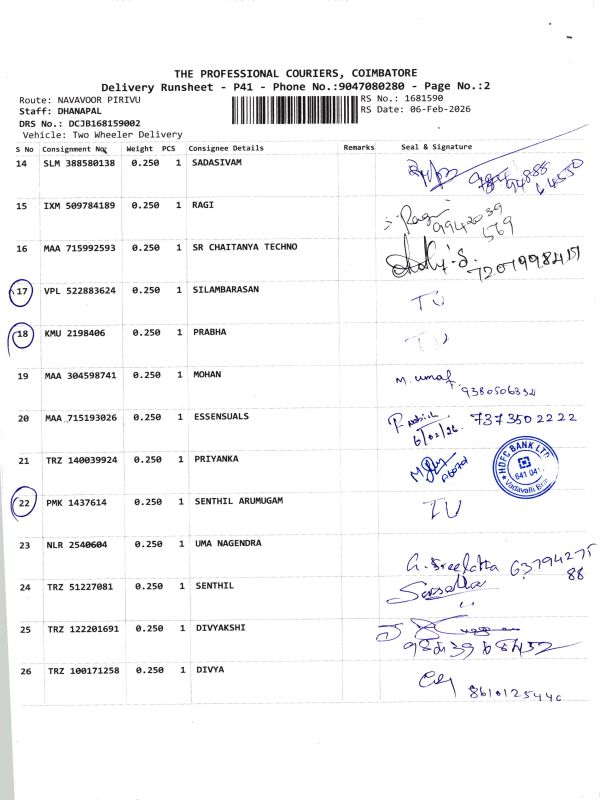 THE PROFESSIONAL COURIERS, COIMBATORE
Delivery Runsheet - P41 - Phone No.:9047080280 - Page No.:2
Route: NAVAVOOR PIRIVU
RS No.: 1681590
Staff: DHANAPAL
RS Date: 06-Feb-2026
DRS No.: DCJB168159002
Vehicle: Two Wheeler Delivery
S No Consignment No Weight PCS Consignee Details Remarks Seal & Signature
14 SLM 388580138 0.250 1 SADASIVAM
15 IXM 509784189 0.250 1 RAGI Ragi 9942039
569
16 MAA 715992593 0.250 1 SR CHAITANYA TECHNO
17 VPL 522883624 0.250 1 SILAMBARASAN
18 KMU 2198406 0.250 1 PRABHA
19 MAA 304598741 0.250 1 MOHAN M. umaf.
20 MAA 715193026 0.250 1 ESSENSUALS 7373502222
6/02/26.
21 TRZ 140039924 0.250 1 PRIYANKA
HDFC BANK LTD
641 041
Vadavalli
22 PMK 1437614 0.250 1 SENTHIL ARUMUGAM
23 NLR 2540604 0.250 1 UMA NAGENDRA
G. Sreelatha 63794275
88
24 TRZ 51227081 0.250 1 SENTHIL
25 TRZ 122201691 0.250 1 DIVYAKSHI
26 TRZ 100171258 0.250 1 DIVYA